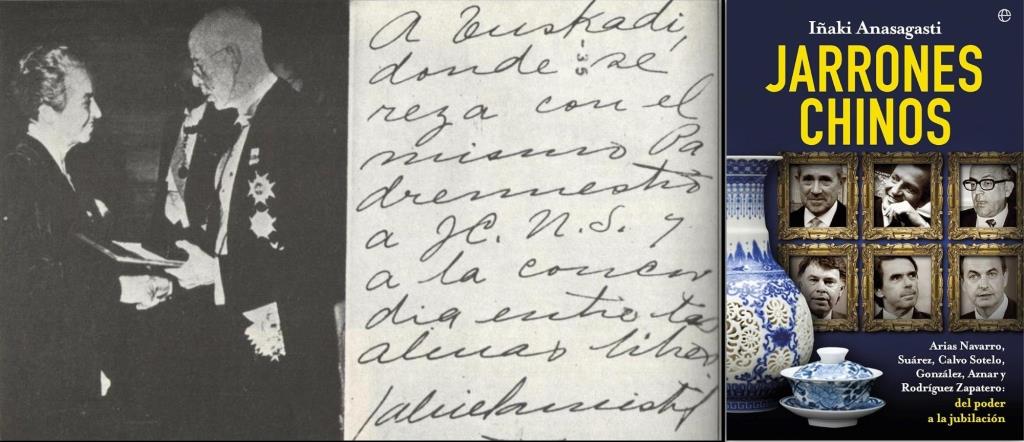 A Euskadi,
donde se
-35
reza con el
mismo Pa
drenuestro
a JC. N.S. y
a la concor
dia entre las
almas libres
Gabriela Mistral
Iñaki Anasagasti
JARRONES
CHINOS
Arias Navarro,
Suárez, Calvo Sotelo,
González, Aznar y
Rodríguez Zapatero:
del poder
a la jubilación